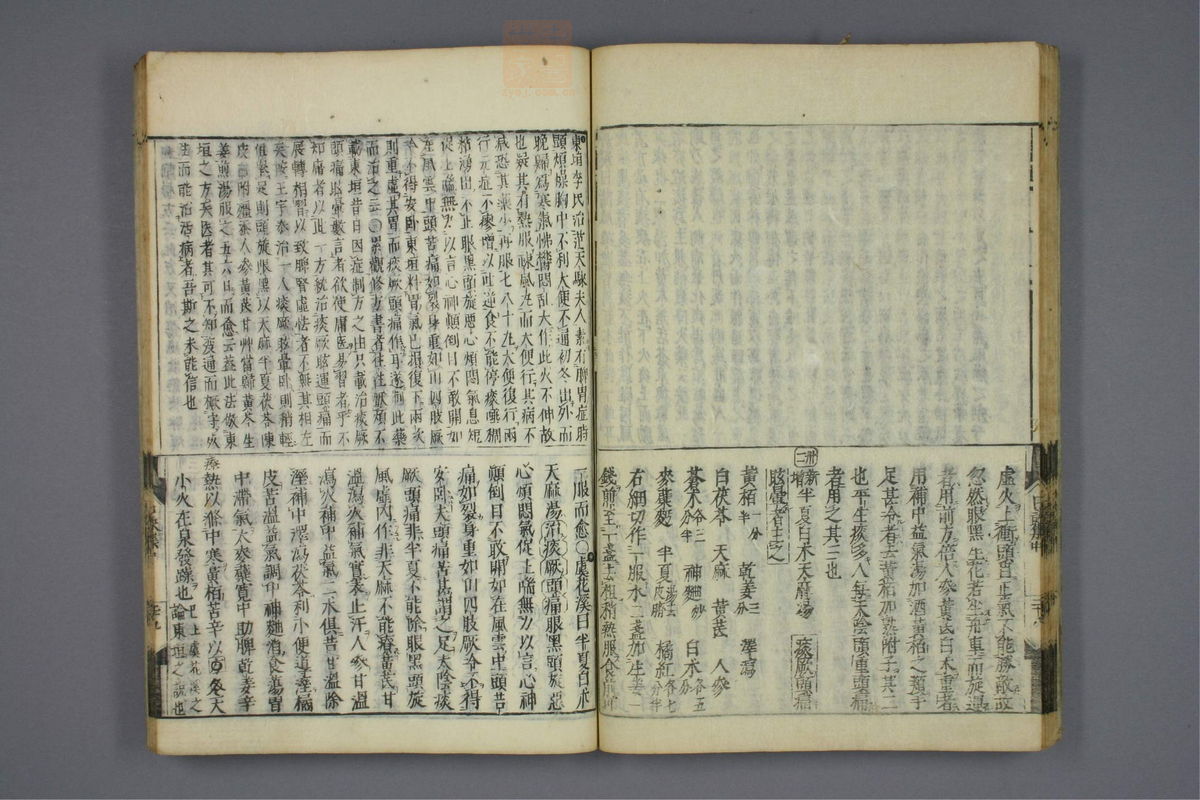 虛火上衝頭目正氣不能勝敵故
忽然眼黑生花若坐舟車而旋運
者用前方倍人參黃芪白朮重者
用補中益氣湯如酒黃栢之類手
足甚冷者去黃栢加熟附子其二
也平生痰多八每天陰頭重頭痛
者用之其三也
卌二 新增 半夏白朮天麻湯 痰厥頭痛
眩暈者主之
黃栢二分半 乾姜三分 澤瀉
白茯苓 天麻 黃芪 人參
蒼朮各二分半 神麯炒 白朮各五分
麥蘗麪 半夏湯去皮臍 橘紅各七分半
右細切作一服水二盞加生姜一
錢煎至一盞去柤稍熱服食前可
東垣李氏治范天騋夫人素有脾胃症時
頭煩躁胸中不利大便不通初冬出外而
晚歸爲寒氣怫鬱悶亂大作此火不伸故
也疑其有熱服踈風丸而大便行其病不
减恐其藥小再服七八十丸大便復行兩
行元症不瘳增以吐逆食不能停痰唾稠
粘湧出不止眼黑頭旋惡心煩悶氣息短
促上喘無力以言心神顛倒目不敢開如
在風雲中頭苦痛如裂身重如山四肢厥
冷不得安臥東垣料胃氣已損復下兩次
則重虛其胃而痰厥頭痛作耳遂制此藥
而治之云○累觀修方書者往往
載東垣昔日因症制方之由只載治痰厥
頭痛眩暈數言者欲使庸医易習者乎不
却痛者以此一方統治痰厥眩運頭痛而
展轉相習以致脾腎虛怯者不無其相左
矣 王宇泰治一人痰厥眩暈臥則稍輕
但 足則頭旋眼黑以天麻半夏茯苓陳
皮 湿添人參黃芪甘艸當歸黃芩生
姜煎湯服之五六日而愈云葢此法倣東
垣之方矣医者其可不知变通而
法而能治活病者吾斯之未能信也
一服而愈○虞花溪曰半夏白朮
天麻湯治痰厥頭痛眼黑頭旋惡
心煩悶氣促上喘無力以言心神
顛倒目不敢開如在風雲中頭苦
痛如裂身重如山四肢厥冷不得
安臥夫頭痛苦甚謂之足太陰痰
厥頭痛非半夏不能除眼黑頭旋
風虛內作非天麻不能療黃芪甘
溫瀉火補氣實表止汗人參甘溫
瀉火補中益氣二朮俱苦甘溫除
溼補中澤瀉茯苓利小便導溼橘
皮苦溫益氣調中神麯消食蕩胃
中滯氣大麥蘗寬中助脾乾姜辛
熱以滌中寒黃栢苦辛以療冬天
少火在泉發躁也已上虞花溪之論東垣之說也